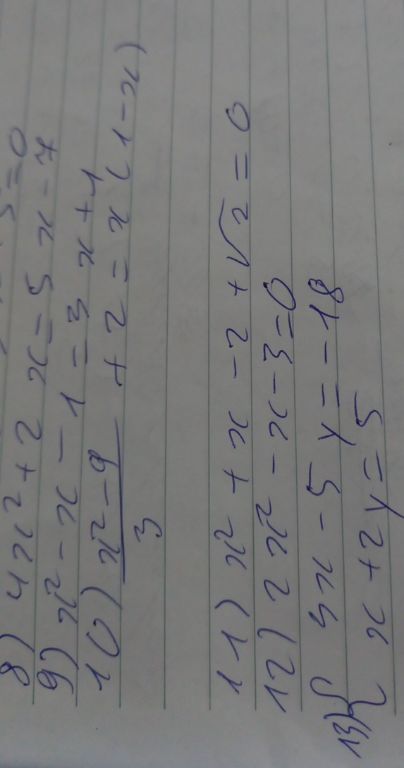 = 0
8) 4x² + 2x = 5x - 7
9) x² - x - 1 = 3x + 4
10) (x² - 9)/3 + 2 = x(1 - x)
11) x² + x - 2 + √2 = 0
12) 2x² - x - 3 = 0
13) { 3x - 5y = -18
x + 2y = 5